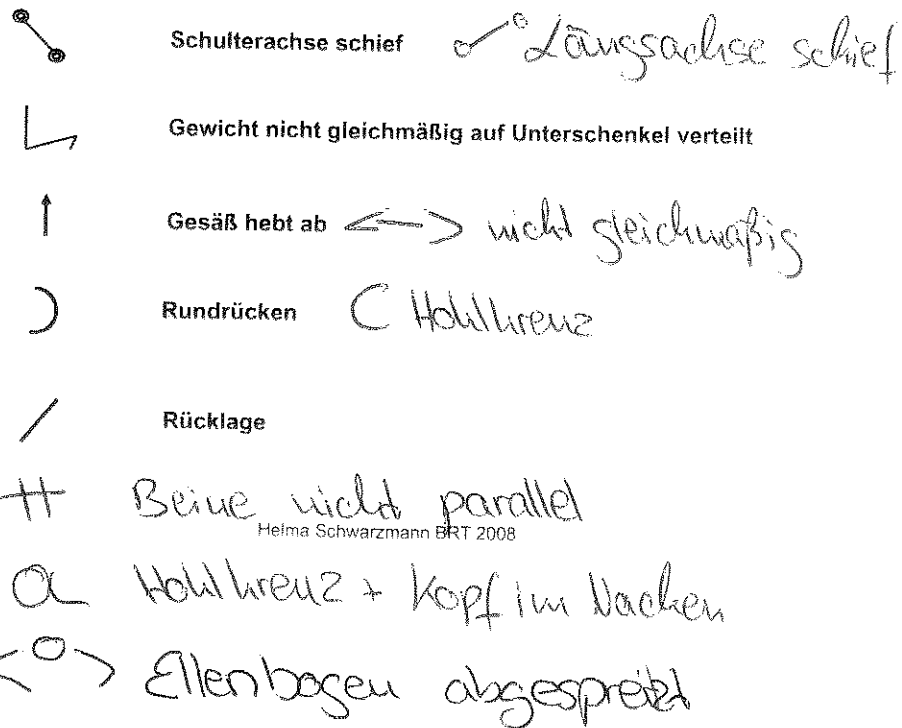 Schulterachse schief Längsachse schief
Gewicht nicht gleichmäßig auf Unterschenkel verteilt
Gesäß hebt ab nicht gleichmäßig
Rundrücken Hohlkreuz
Rücklage
Beine nicht parallel
Helma Schwarzmann BRT 2008
Hohlkreuz + Kopf im Nacken
Ellenbogen abgespreizt